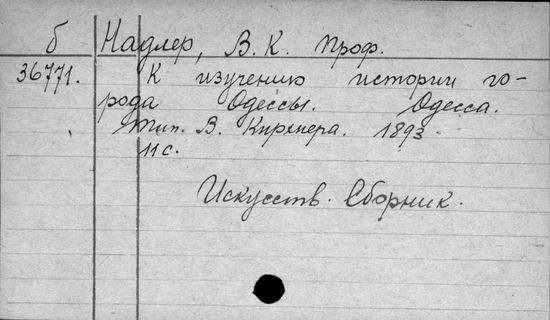 б Надлер, В. К. проф.
36771. К изучению истории го-
рода Одессы. Одесса.
тип. В. Кирхнера. 1893.
11 с.
Искусств. Сборник.